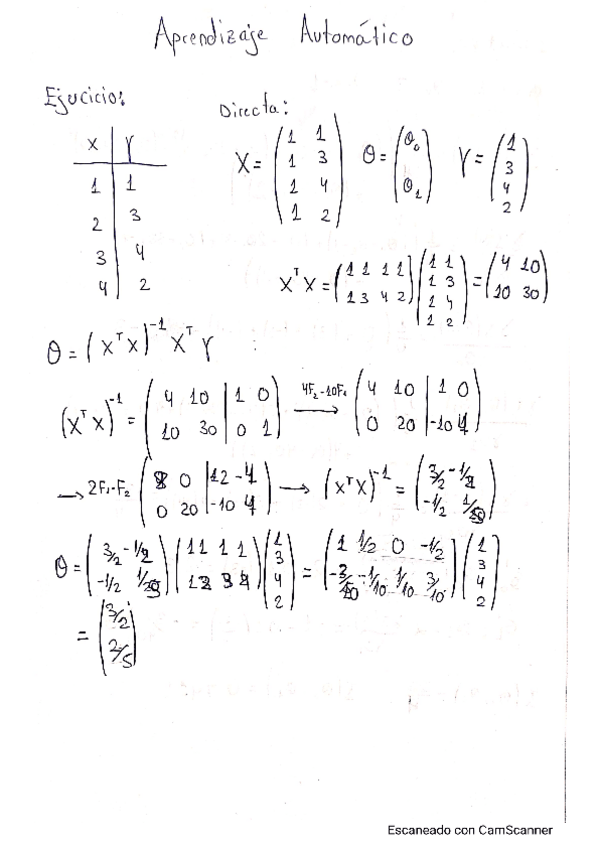 Aprendizaje Automático
Ejercicio:
Directa:
X | Y
1 | 1
2 | 3
3 | 4
4 | 2
X = (1 1; 1 3; 1 4; 1 2) θ = (θ₀; θ₁) Y = (1; 3; 4; 2)
XᵀX = (1 1 1 1; 1 3 4 2)(1 1; 1 3; 1 4; 1 2) = (4 10; 10 30)
θ = (XᵀX)⁻¹ Xᵀ Y :
(XᵀX)⁻¹ = (4 10 | 1 0; 10 30 | 0 1) 4F₂-10F₁ → (4 10 | 1 0; 0 20 | -10 4)
→ 2F₁-F₂ (8 0 | 12 -4; 0 20 | -10 4) → (XᵀX)⁻¹ = (3/2 -1/2; -1/2 1/5)
θ = (3/2 -1/2; -1/2 1/5)(1 1 1 1; 1 2 3 4)(1; 3; 4; 2) = (1 1/2 0 -1/2; -3/10 -1/10 1/10 3/10)(1; 3; 4; 2)
= (3/2; 2/5)
Escaneado con CamScanner